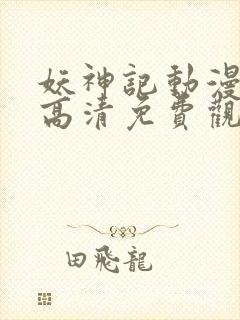 妖神記動漫
高清免費觀
田飛龍